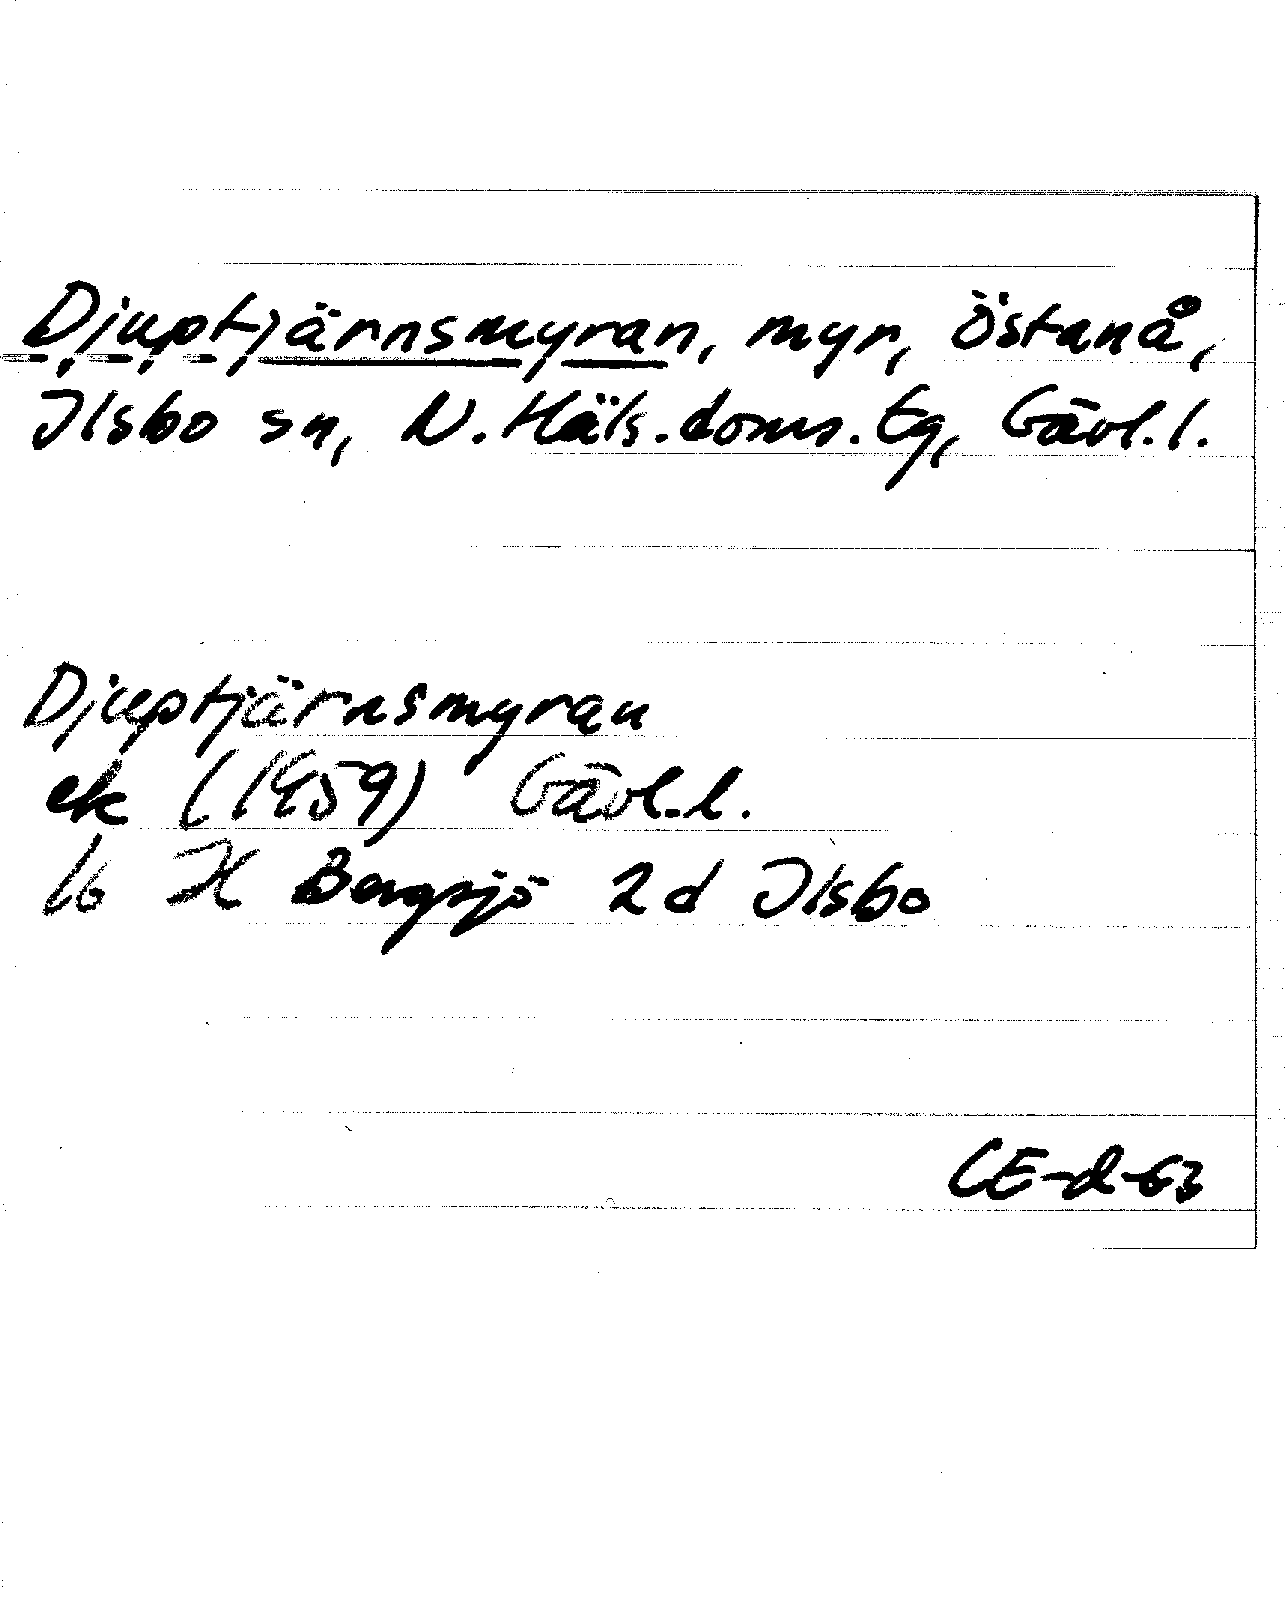 Djuptjärnsmyran, myr, Östanå,
Ilsbo sn, N. Häls. doms. tg, Gävl. l.
Djuptjärnsmyran
ek (1959) Gävl. l.
16 H Bergsjö 2d Ilsbo
CE-d-63